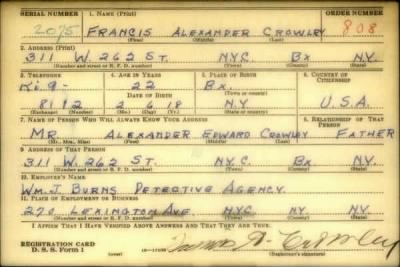 SERIAL NUMBER 1. NAME (Print) ORDER NUMBER
2075 FRANCIS ALEXANDER CROWLEY 808
(First) (Middle) (Last)
2. ADDRESS (Print)
311 W. 262 ST. N.Y.C. BX N.Y.
(Number and street or R. F. D. number) (Town) (County) (State)
3. TELEPHONE 4. AGE IN YEARS 5. PLACE OF BIRTH 6. COUNTRY OF CITIZENSHIP
Ki. 9- 22 BX.
DATE OF BIRTH (Town or county)
8112 2 6 18 N.Y. U.S.A.
(Exchange) (Number) (Mo.) (Day) (Yr.) (State or country)
7. NAME OF PERSON WHO WILL ALWAYS KNOW YOUR ADDRESS 8. RELATIONSHIP OF THAT PERSON
MR. ALEXANDER EDWARD CROWLEY FATHER
(Mr., Mrs., Miss) (First) (Middle) (Last)
9. ADDRESS OF THAT PERSON
311 W. 262 ST. N.Y.C. BX N.Y.
(Number and street or R. F. D. number) (Town) (County) (State)
10. EMPLOYER'S NAME
WM. J. BURNS DETECTIVE AGENCY.
11. PLACE OF EMPLOYMENT OR BUSINESS
270 LEXINGTON AVE. N.Y.C. NY N.Y.
(Number and street or R. F. D. number) (Town) (County) (State)
I AFFIRM THAT I HAVE VERIFIED ABOVE ANSWERS AND THAT THEY ARE TRUE.
REGISTRATION CARD
D. S. S. Form 1 Francis A. Crowley
(Registrant's signature)